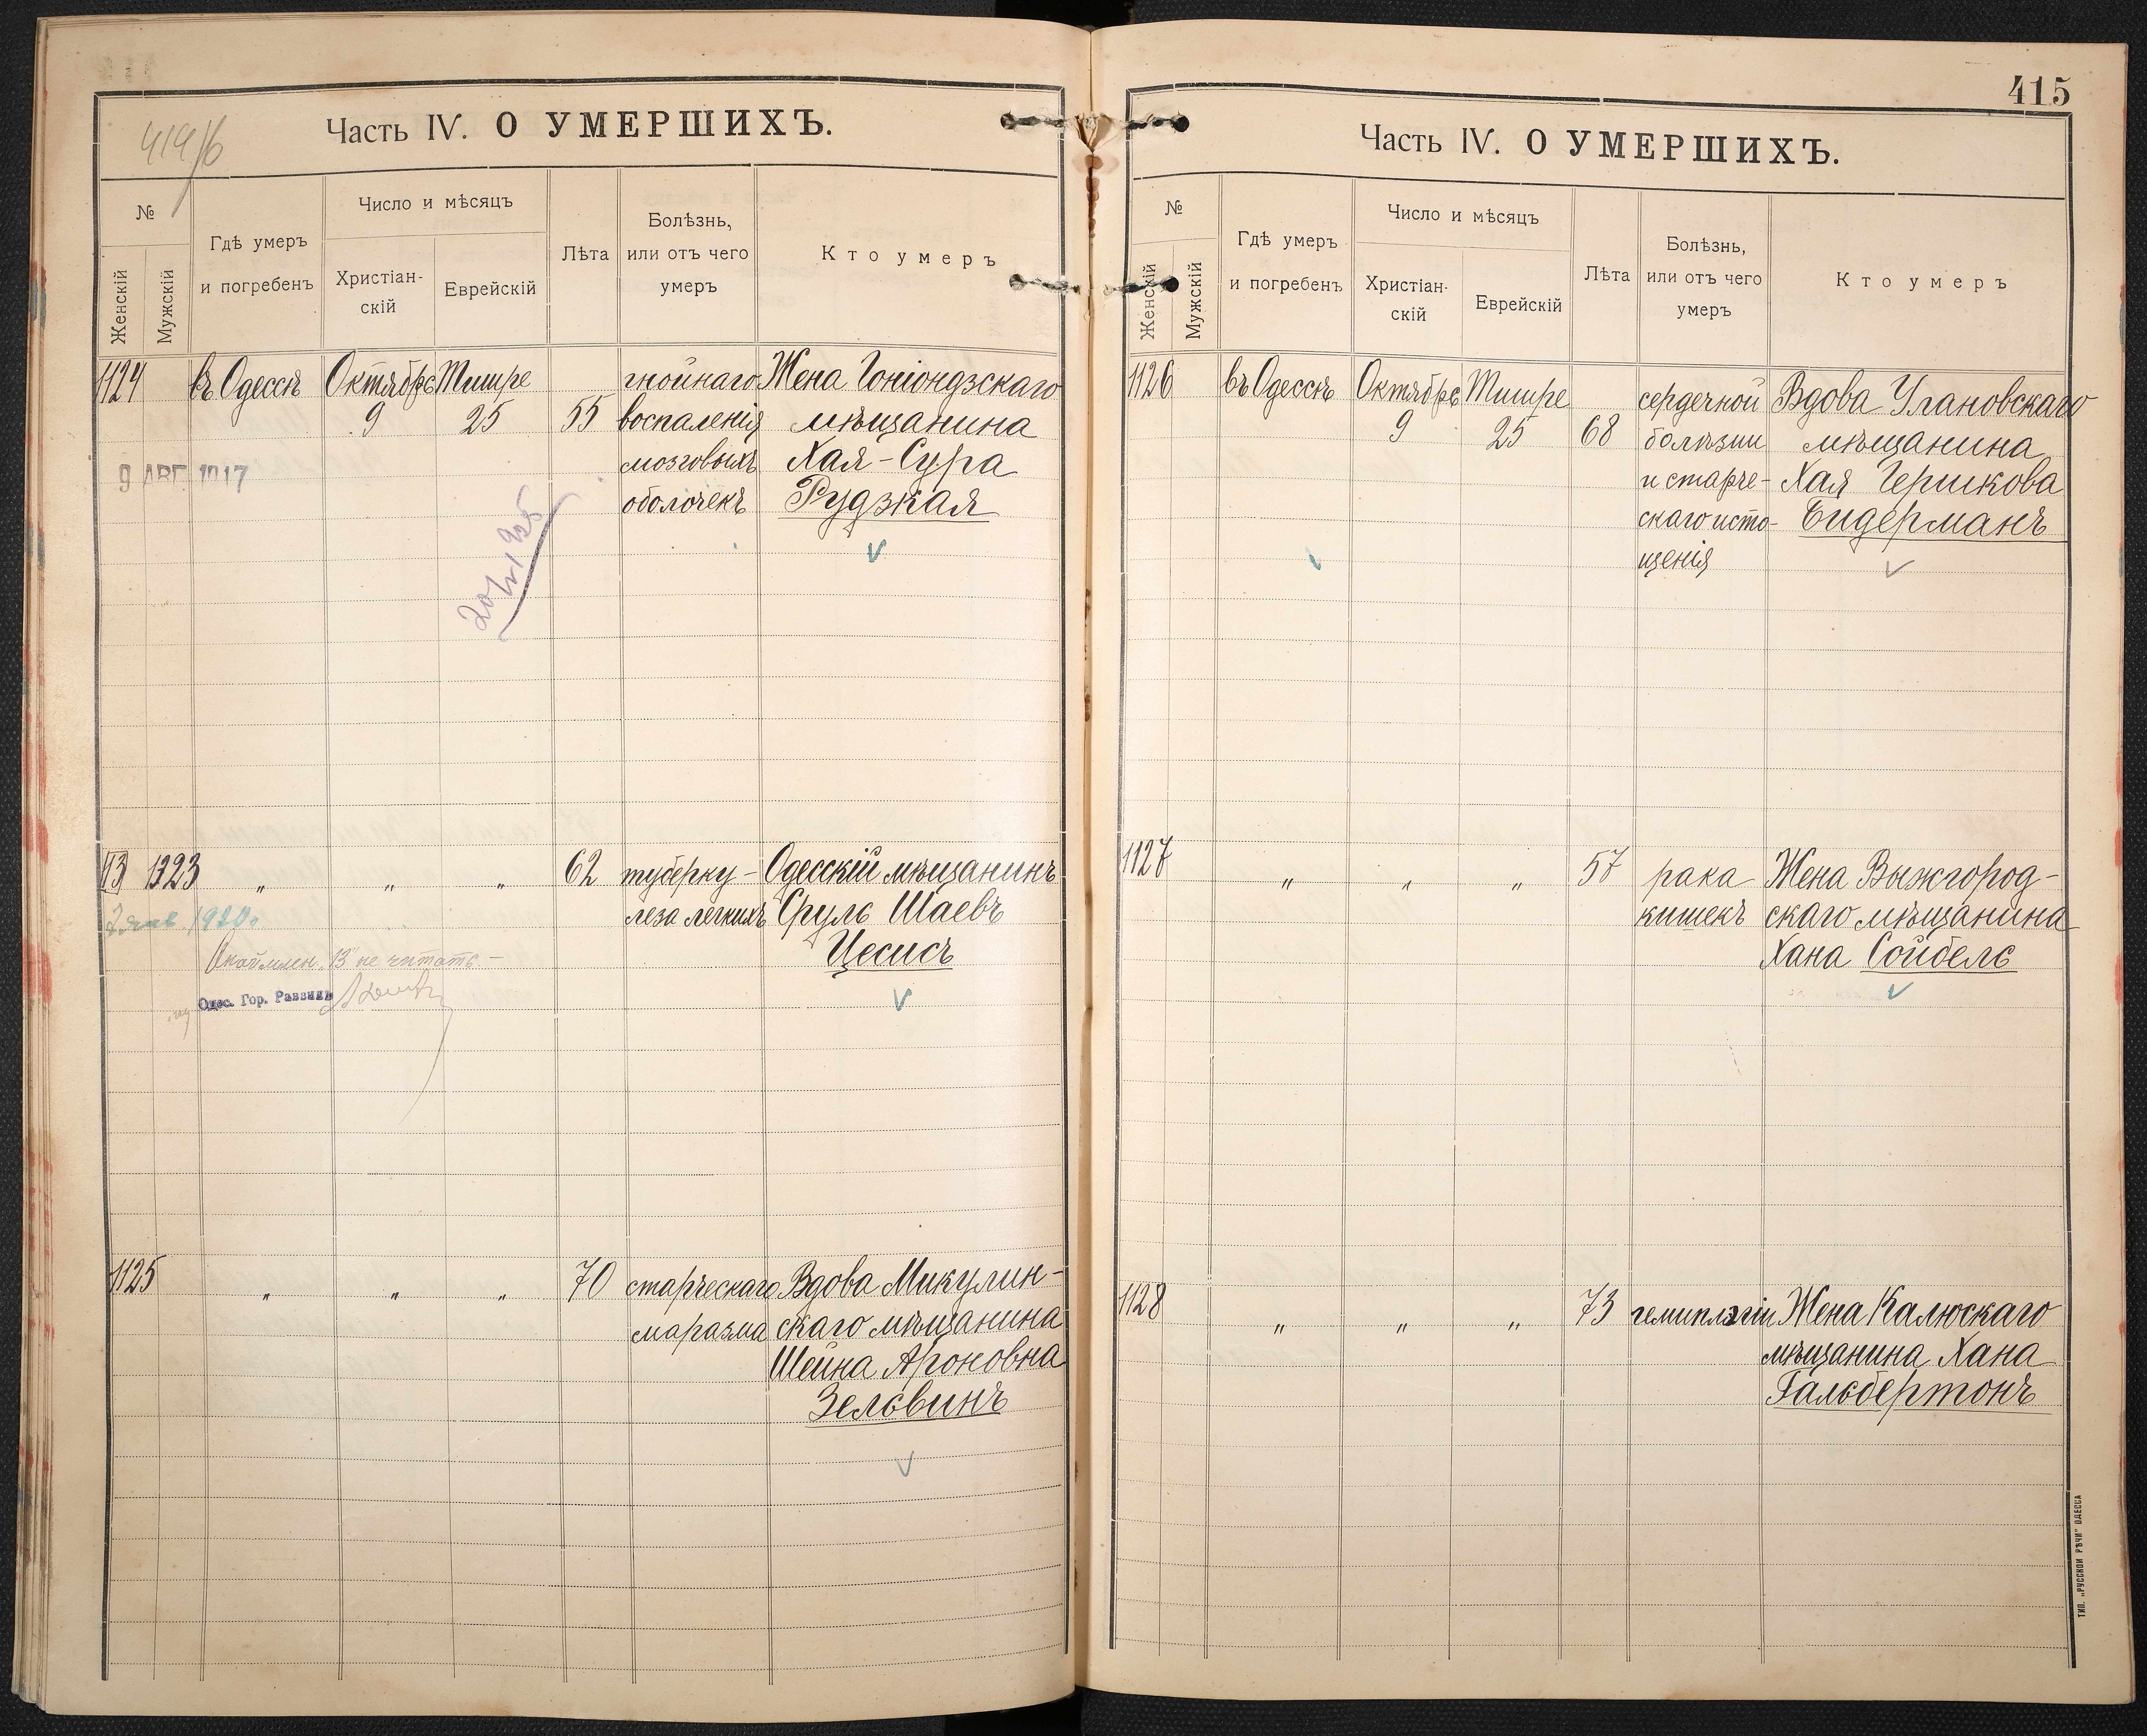 414/б
Часть IV. О УМЕРШИХЪ.
№
Женскій
Мужскій
Гдѣ умеръ
и погребенъ
Число и мѣсяцъ
Христіан-
скій
Еврейскій
Лѣта
Болѣзнь,
или отъ чего
умеръ
Кто умеръ
1124 въ Одессѣ Октябрь Тишре гнойнаго Жена Гоніондзскаго
9 25 55 воспаленія мѣщанина
9 АВГ. 1917 мозговыхъ Хая-Сура
оболочекъ Рудзкая
13 1323 „ „ „ 62 туберку- Одесскій мѣщанинъ
1920 леза легкихъ Сруль Шаевъ
Цесисъ
„13" не читать.-
Одес. Гор. Раввинъ
1125 „ „ „ 70 старческаго Вдова Микулин-
маразма скаго мѣщанина
Шейна Ароновна
Зельвинъ
415
Часть IV. О УМЕРШИХЪ.
№
Женскій
Мужскій
Гдѣ умеръ
и погребенъ
Число и мѣсяцъ
Христіан-
скій
Еврейскій
Лѣта
Болѣзнь,
или отъ чего
умеръ
Кто умеръ
1126 въ Одессѣ Октябрь Тишре сердечной Вдова Улановскаго
9 25 68 болѣзни мѣщанина
и старче- Хая Гершкова
скаго исто- Бидерманъ
щенія
1127 „ „ „ 57 рака Жена Выжгород-
кишекъ скаго мѣщанина
Хана Сойбель
1128 „ „ „ 73 гемиплегіи Жена Калюскаго
мѣщанина Хана
Гальбертонъ
ТИП. „РУССКОЙ РѢЧИ" ОДЕССА